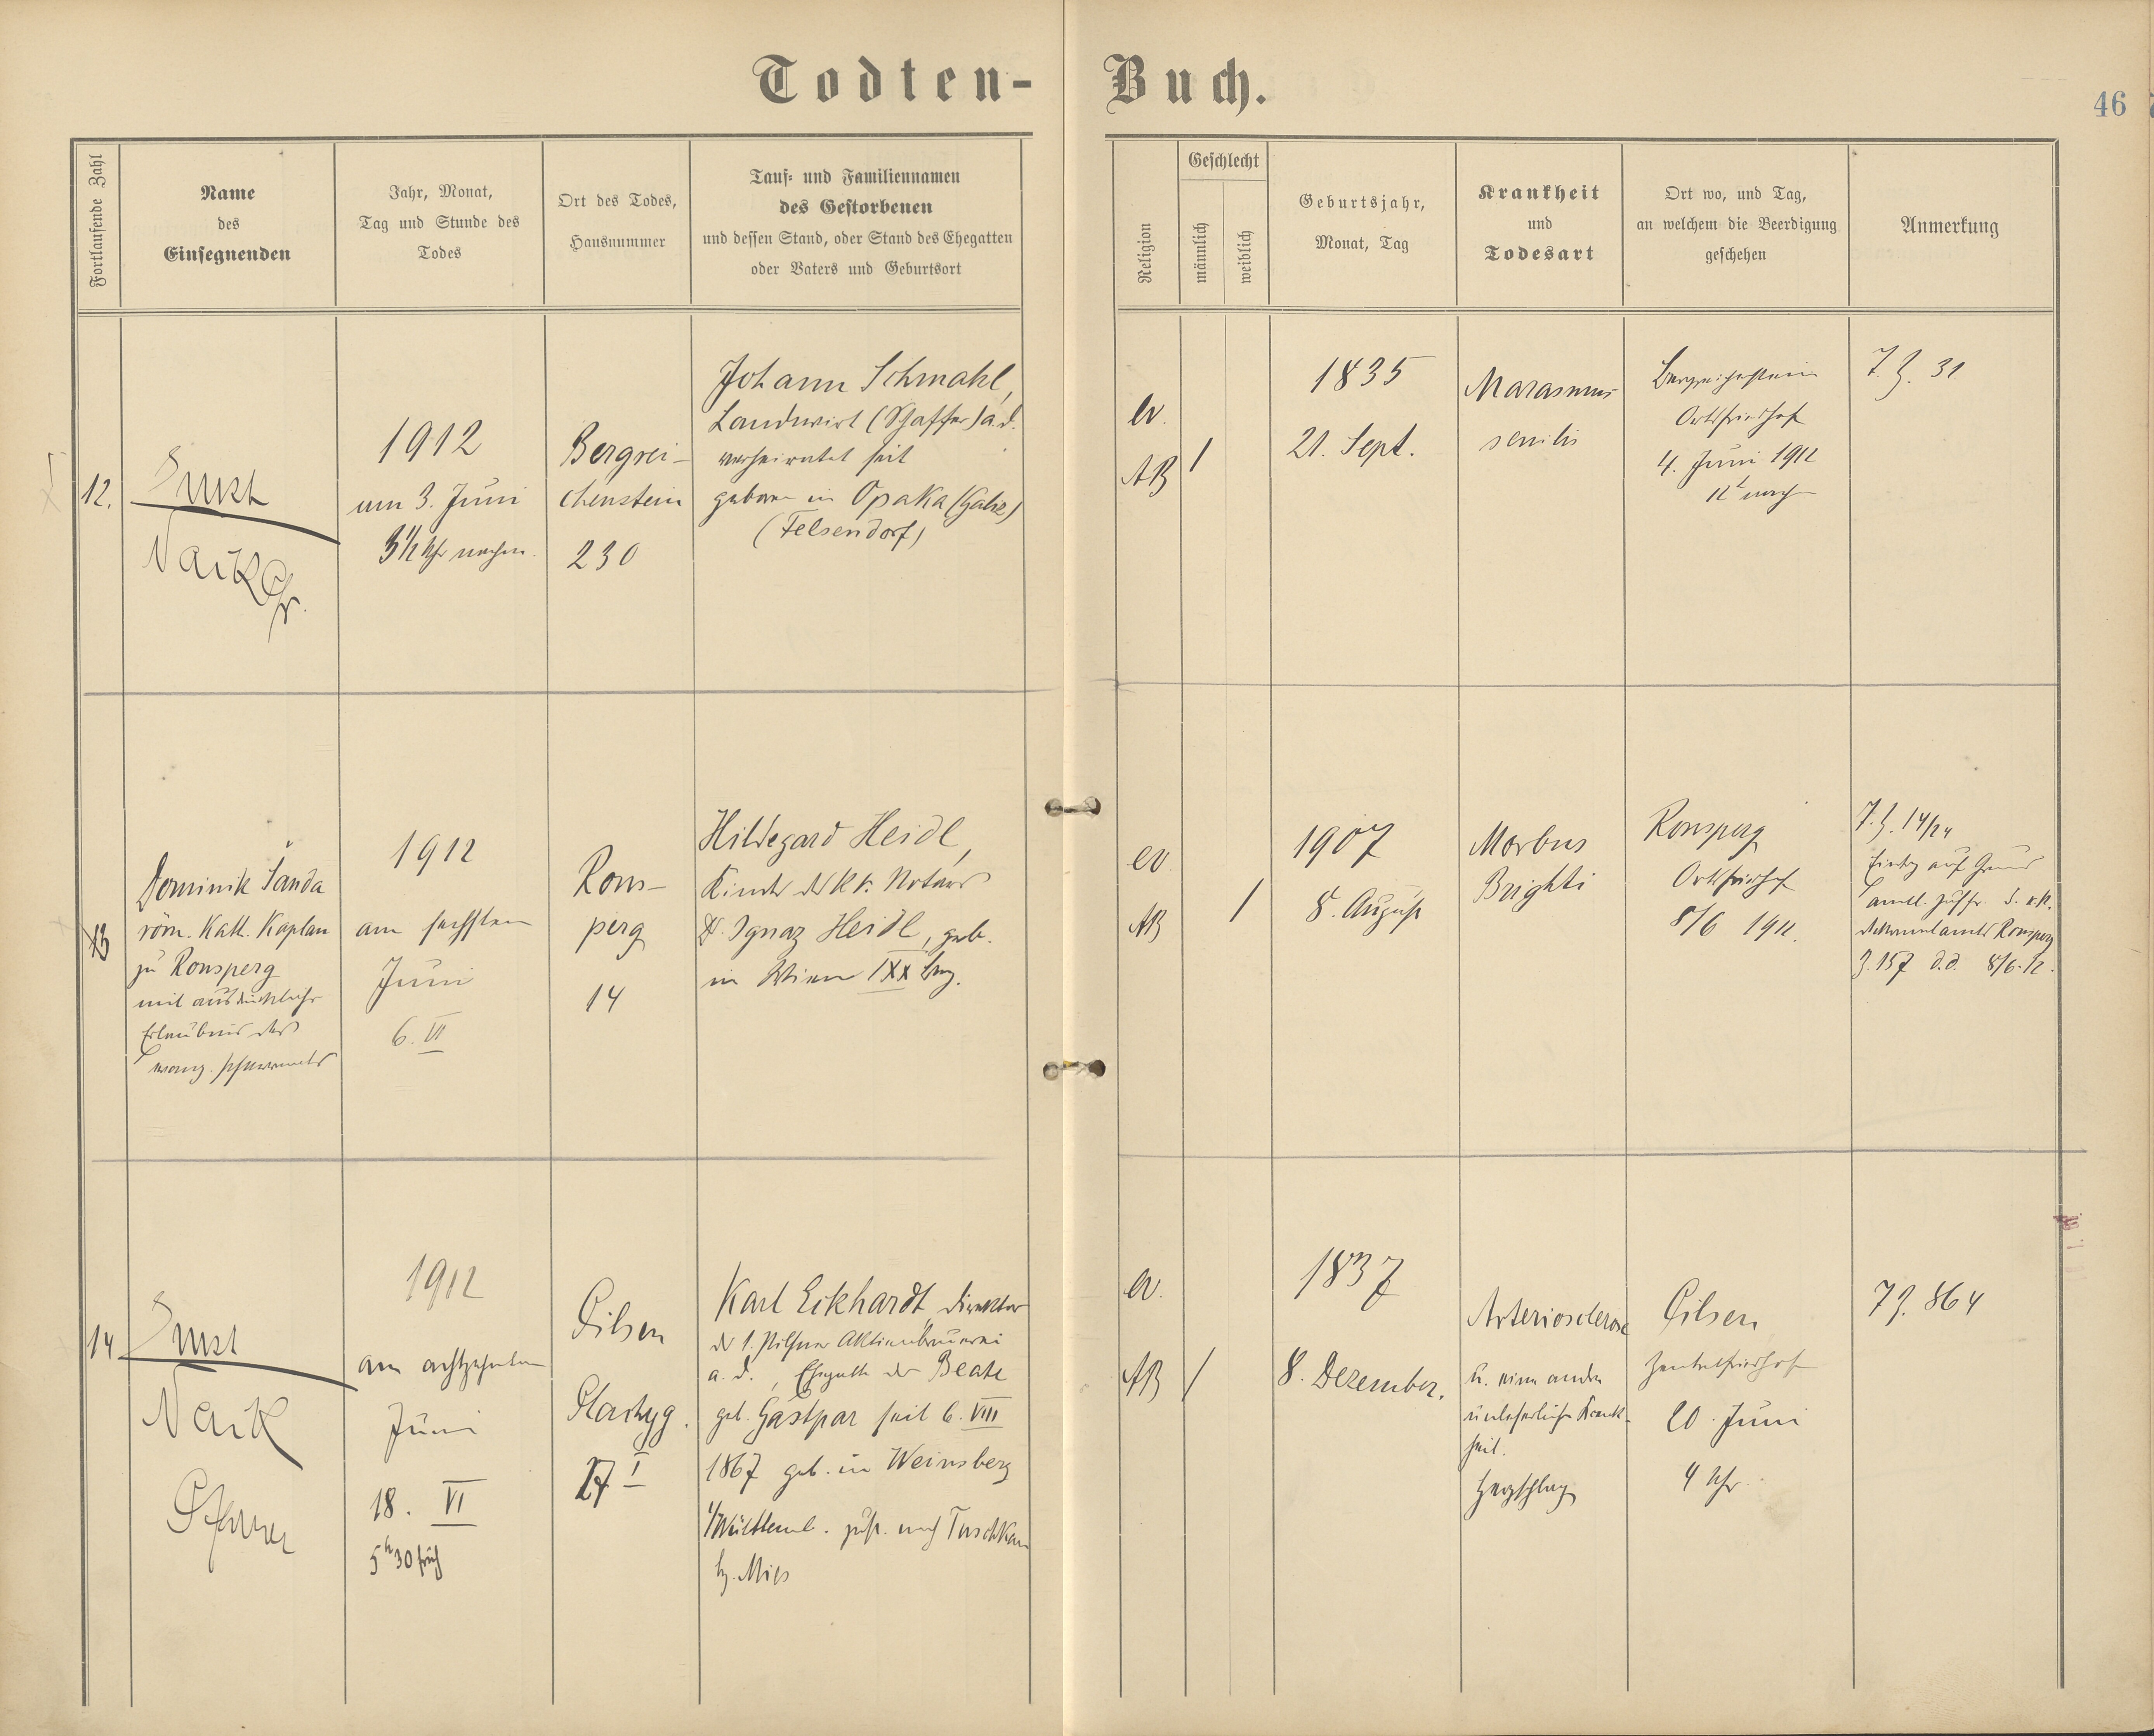 Todten-Buch.
46
Fortlaufende Zahl
Name
des
Einsegnenden
Jahr, Monat,
Tag und Stunde des
Todes
Ort des Todes,
Hausnummer
Tauf- und Familiennamen
des Gestorbenen
und dessen Stand, oder Stand des Ehegatten
oder Vaters und Geburtsort
Religion
Geschlecht
männlich
weiblich
Geburtsjahr,
Monat, Tag
Krankheit
und
Todesart
Ort wo, und Tag,
an welchem die Beerdigung
geschehen
Anmerkung
12.
Ernst
1912
um 3. Juni
3½ Uhr nachm.
Bergrei-
chenstein
230
Johann Schmahl,
Landwirt (Schaffer) a. d.
verheiratet seit
geboren in Opaka (Galiz)
(Felsendorf)
ev.
AB
1
1835
21. Sept.
Marasmus
senilis
Bergreichenstein
Ortsfriedhof
4. Juni 1912
J. Z. 31
13
Dominik Šanda
röm. Kath. Kaplan
zu Ronsperg
mit ausdrücklicher
Erlaubnis des
evang. Pfarramts
1912
am sechsten
Juni
6. VI
Rons-
perg
14
Hildegard Heidl,
Kind des k. k. Notars
Dr. Ignaz Heidl, geb.
in Wien IXX Bez.
ev
AB
/
1907
8. August
Morbus
Brighti
Ronsperg
Ortsfriedhof
8/6 1912.
J. Z. 14/24
auf Grund
d. k. k.
Ronsperg
Z. 157 d.d. 8/6. 12.
14
Ernst
Pfarrer
1912
am achtzehnten
Juni
18. VI
5h 30 früh
Pilsen
17 I
Karl Eckhardt, Direktor
der 1. Pilsner Aktienbrauerei
a. d., Ehegatte der Beate
geb. Gastpar seit 6. VIII
1867 geb. in Weinsberg
Württemb. zust. nach Tuschkau
bz. Mies
ev.
AB
/
1837
8. Dezember.
Arteriosclerose
u. eine andre
unheilbare Krank-
heit.
Herzschlag
Pilsen
Zentralfriedhof
20. Juni
4 Uhr.
J Z. 864